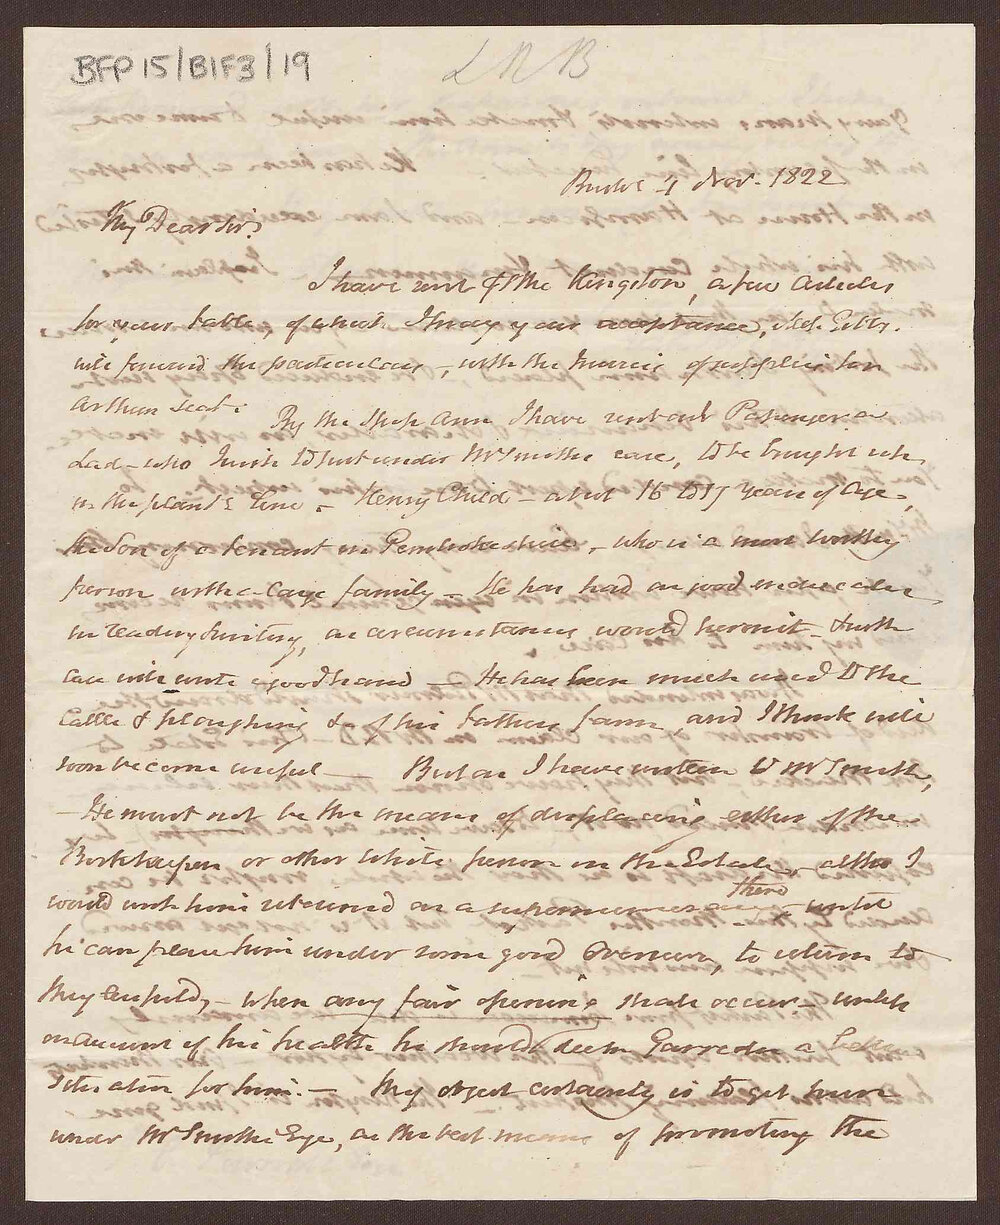 BFP 15/B1F3/19
LRB
4 Nov. 1822
My Dear Sir,
I have sent the Kingston, a few articles
for your table, of which I pray your acceptance,
will forward the particulars, with the Invoice of supplies for
Arthur Seat.
By the Ship Ann I have sent out Passenger a
Lad - who I wish to put under Mr Smith's care, to be brought up
in the planting Line - Henry Child - about 16 to 17 years of Age,
the Son of a tenant in Pembrokeshire, who is a most worthy
person with a large family - He has had as good an education
in reading & writing, as circumstances would permit - & with
care will write a good hand - He has been much used to the
Cattle & ploughing &c of his fathers farm, and I think will
soon become useful - But as I have written to Mr Smith,
- He must not be the means of displacing either of the
Bookkeepers or other White person on the Estate, - altho I
would wish him retained as a supernumerary there until
he can place him under some good Overseer, to return to
- when any fair opening shall occur - unless
on account of his health he should deem Garredu a
situation for him. - My object certainly is to get him
under Mr Smith's Eye, as the best means of promoting the